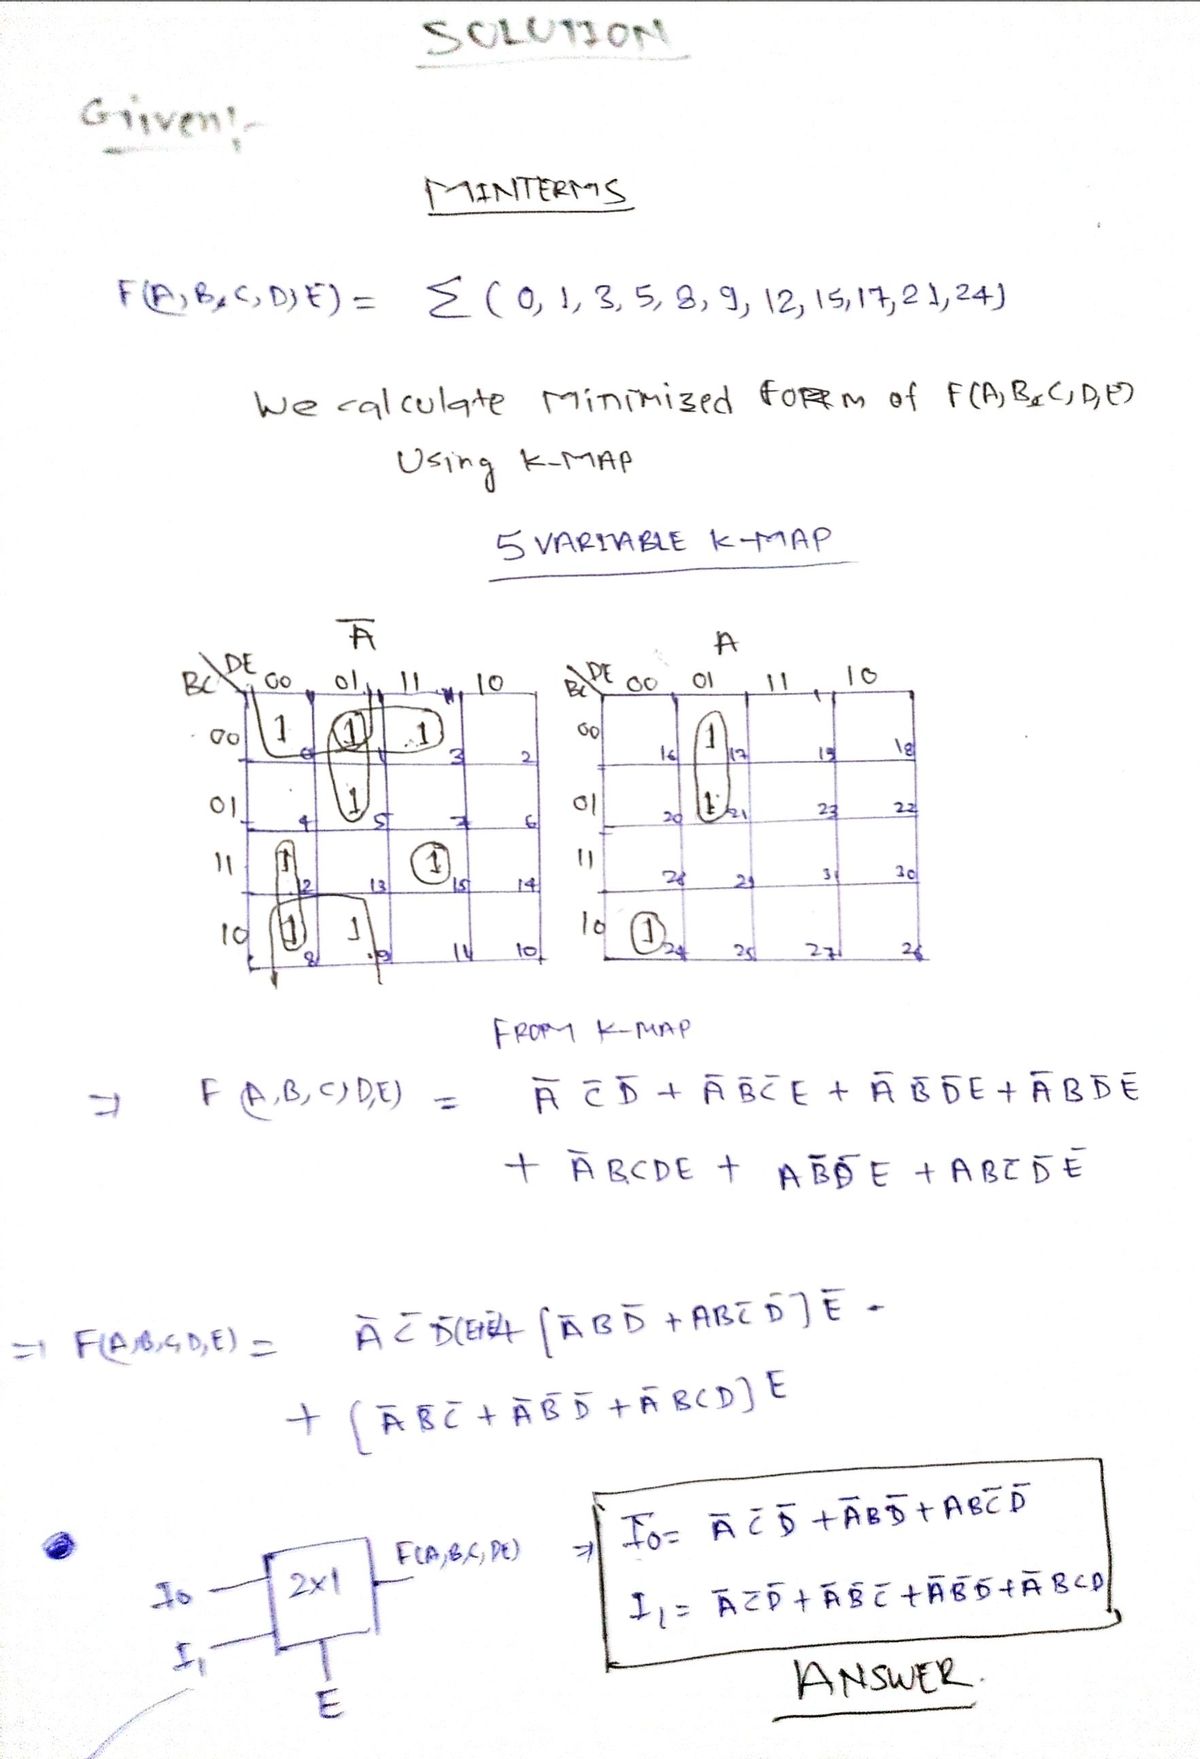 SOLUTION
Giiven:-
MINTERMS
F(A,B,C,D,E) = Σ ( 0, 1, 3, 5, 8, 9, 12, 15, 17, 21, 24)
We calculate minimized form of F(A,B,C,D,E)
Using K-MAP
5 VARIABLE K-MAP
A̅ A
BC DE 00 01 11 10 BC DE 00 01 11 10
00 1 0 1 1 1 3 2 00 16 1 17 19 18
01 4 1 5 7 6 01 20 1 21 23 22
11 1 12 13 1 15 14 11 28 29 31 30
10 1 8 1 9 11 10 10 1 24 25 27 26
FROM K-MAP
⇒ F (A,B,C,D,E) = A̅ C̅ D̅ + A̅ B̅ C̅ E + A̅ B̅ D̅ E + A̅ B D̅ E̅
+ A̅ B C D E + A B̅ D̅ E + A B C̅ D̅ E̅
⇒ F(A,B,C,D,E) = A̅ C̅ D̅(E+E̅)+ [A̅ B D̅ + A B C̅ D̅] E̅
+ [A̅ B̅ C̅ + A̅ B̅ D̅ + A̅ B C D] E
I0 2x1 F(A,B,C,D,E) ⇒ I0 = A̅ C̅ D̅ + A̅ B D̅ + A B C̅ D̅
I1 I1 = A̅ C̅ D̅ + A̅ B̅ C̅ + A̅ B̅ D̅ + A̅ B C D
E
ANSWER.